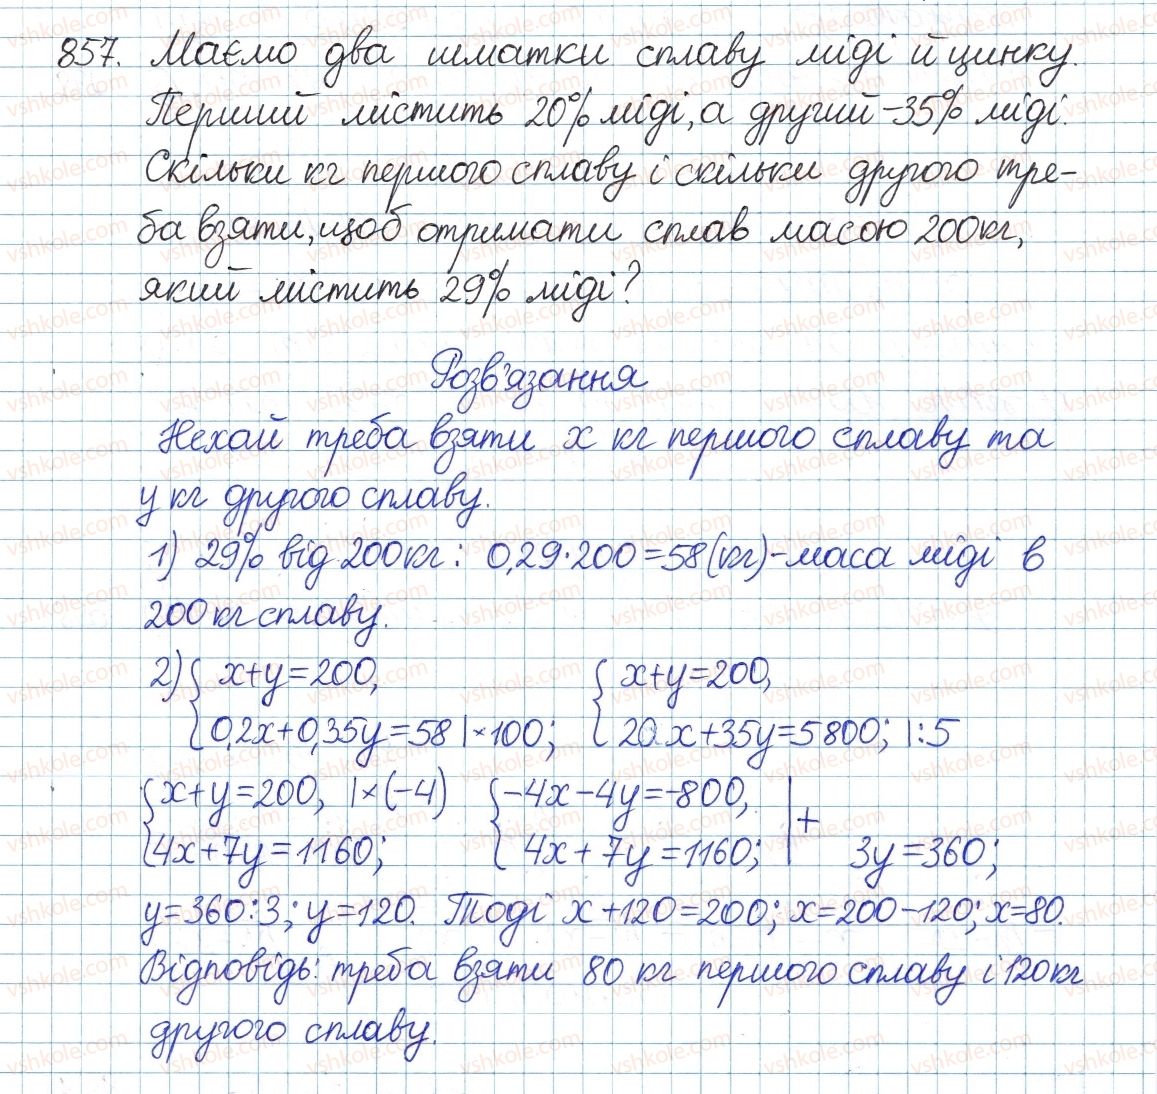 857. Маємо два шматки сплаву міді й цинку.
Перший містить 20% міді, а другий - 35% міді.
Скільки кг першого сплаву і скільки другого тре-
ба взяти, щоб отримати сплав масою 200 кг,
який містить 29% міді?
Розв'язання
Нехай треба взяти x кг першого сплаву та
y кг другого сплаву.
1) 29% від 200 кг: 0,29·200=58(кг)-маса міді в
200 кг сплаву.
2) { x+y=200, { x+y=200,
0,2x+0,35y=58 |×100; 20x+35y=5800; |:5
{ x+y=200, |×(-4) { -4x-4y=-800, | +
4x+7y=1160; 4x+7y=1160; 3y=360;
y=360:3; y=120. Тоді x+120=200; x=200-120; x=80.
Відповідь: треба взяти 80 кг першого сплаву і 120 кг
другого сплаву.
vshkole.com